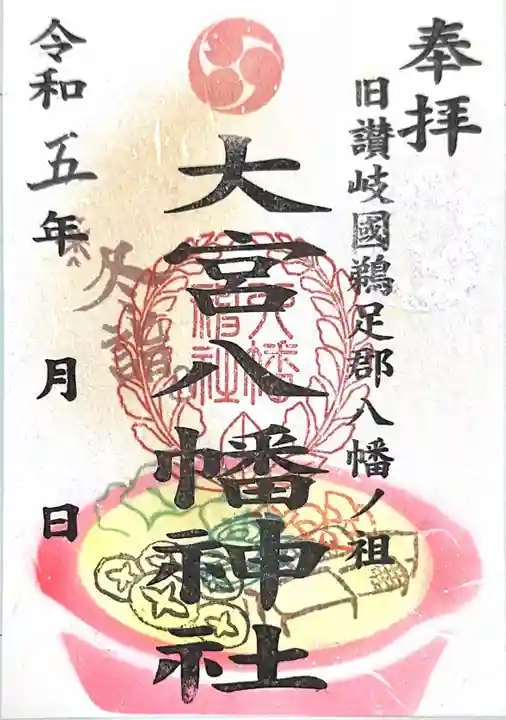 奉拝
旧讃岐國鵜足郡八幡ノ祖
大宮八幡神社
令和五年 月 日